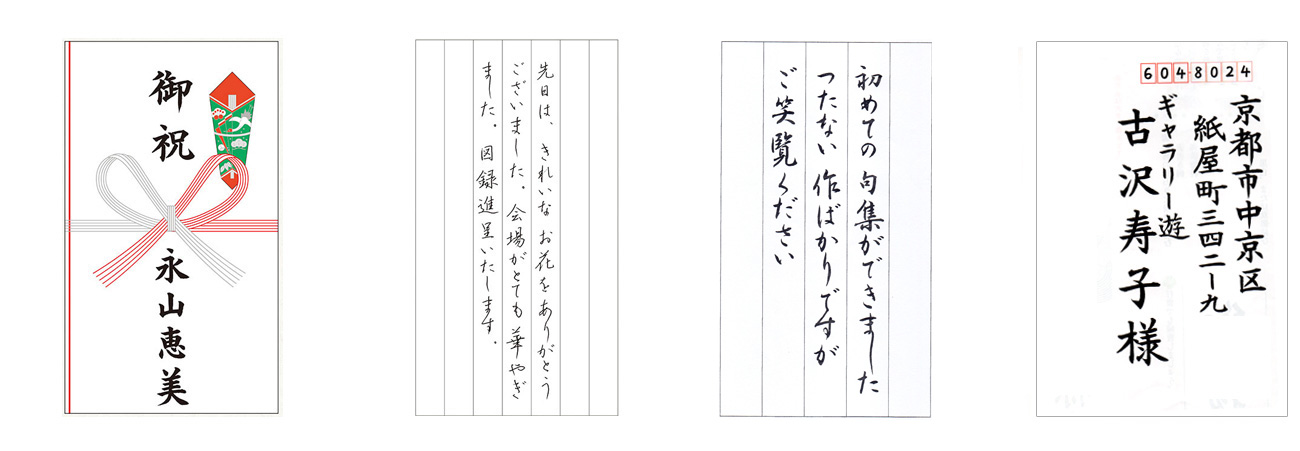 御祝
永山恵美
先日は、きれいなお花をありがとう
ございました。会場がとても華やぎ
ました。図録進呈いたします。
初めての句集ができました
つたない作ばかりですが
ご笑覧ください
6048024
京都市中京区
紙屋町三四二ー九
ギャラリー遊
古沢寿子様